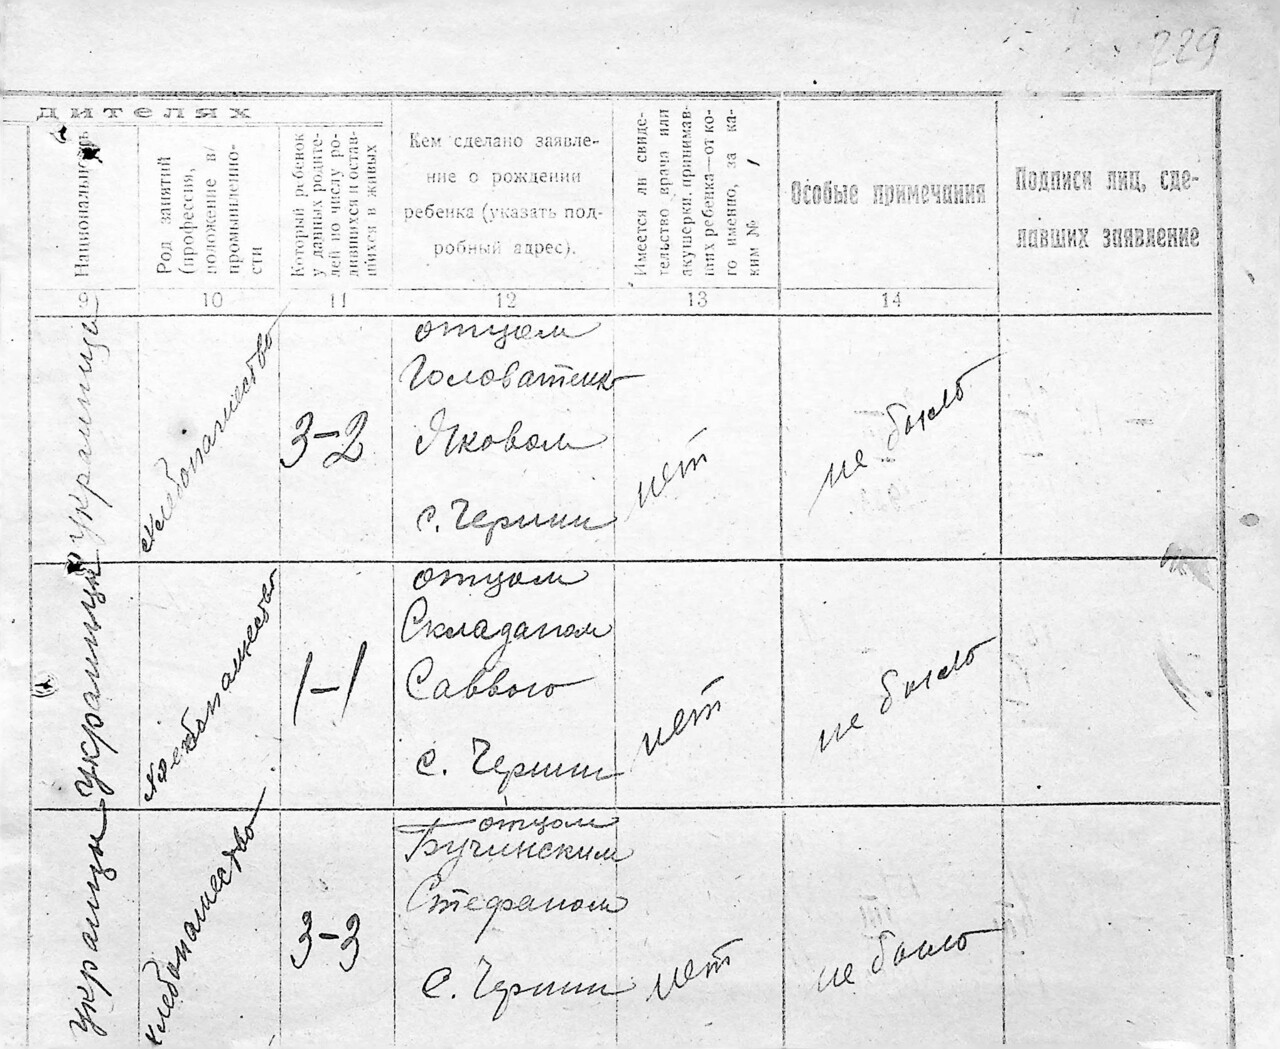 229
дителях
Национальность
Род занятий
(профессия,
положение в/
промышленно-
сти
Который ребенок
у данных родите-
лей по числу ро-
дившихся и остав-
шихся в живых
Кем сделано заявле-
ние о рождении
ребенка (указать под-
робный адрес).
Имеется ли свиде-
тельство врача или
акушерки, принимав-
ших ребенка—от ко-
го именно, за ка-
ким №
Особые примечания
Подписи лиц, сде-
лавших заявление
9
10
11
12
13
14
украинцы
хлебопашество
3-2
отцом
Головатенко
Яковом
с. Чермин
нет
не было
украинцы
хлебопашество
1-1
отцом
Складаном
Саввою
с. Чермин
нет
не было
украинцы
хлебопашество
3-3
отцом
Бучинским
Стефаном
с. Чермин
нет
не было